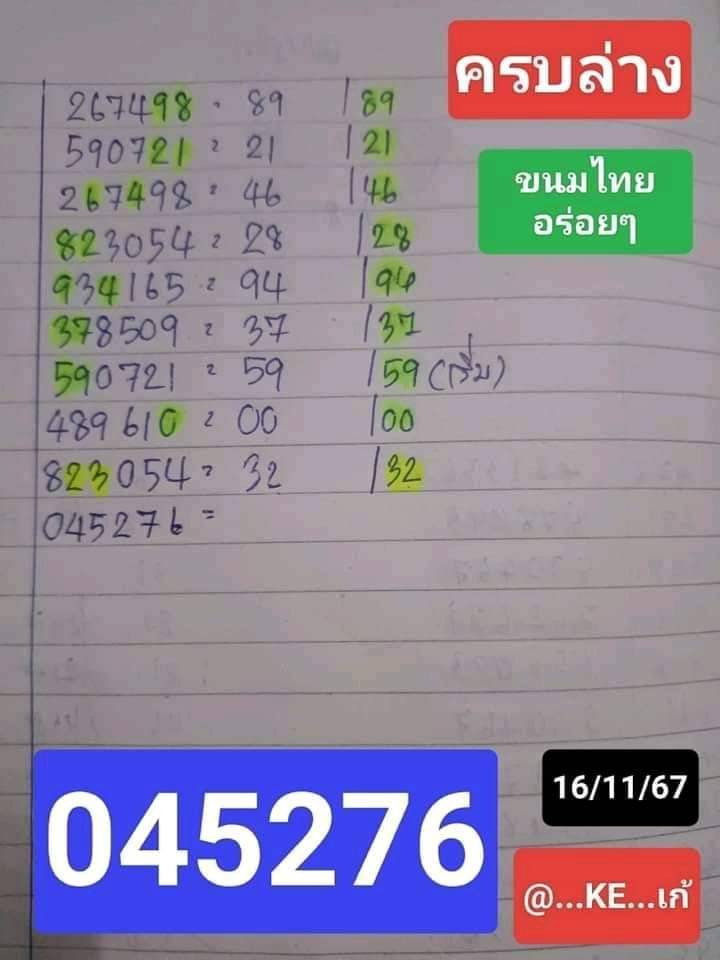 ครบล่าง
267498 = 89 | 89
590721 = 21 | 21
ขนมไทย
อร่อยๆ
267498 = 46 | 46
823054 = 28 | 28
934165 = 94 | 94
378509 = 37 | 37
590721 = 59 | 59 (เริ่ม)
489610 = 00 | 00
823054 = 32 | 32
045276 =
045276
16/11/67
@...KE...เก้